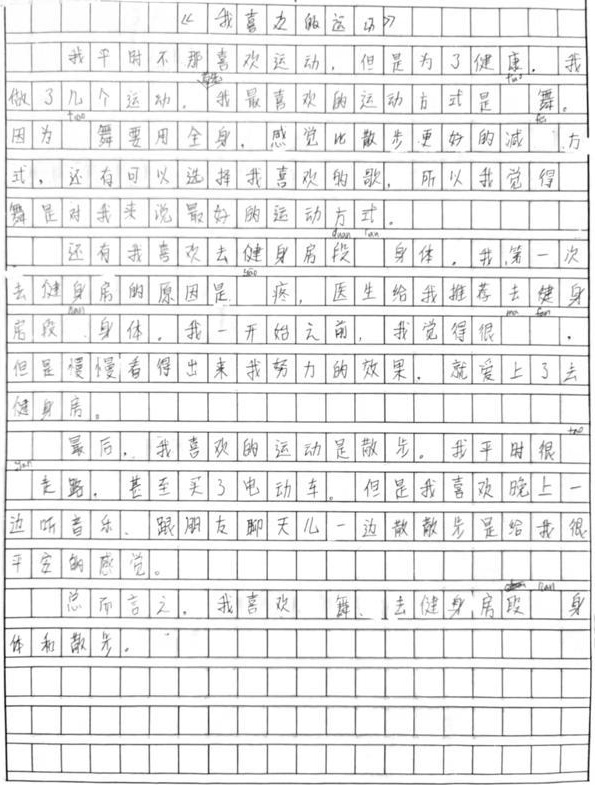 《我喜欢的运动》
我平时不那喜欢运动，但是为了健康，我
做了几个运动。首先 我最喜欢的运动方式是 tiao 舞。
因为 tiao 舞要用全身，感觉比散步更好的减 fei 方
式，还有可以选择我喜欢的歌，所以我觉得
舞是对我来说最好的运动方式。
还有我喜欢去健身房段 duan lan 身体，我第一次
去健身房的原因是 yao 疼，医生给我推荐去健身
房段 lian 身体。我一开始之前，我觉得很 ma fan ，
但是慢慢看得出来我努力的效果，就爱上了去
健身房。
最后，我喜欢的运动是散步。我平时很 tao
yan 走路，甚至买了电动车。但是我喜欢晚上一
边听音乐、跟朋友聊天儿一边散散步是给我很
平安的感觉。
总而言之，我喜欢 舞、去健身房段 lian 身
体和散步。